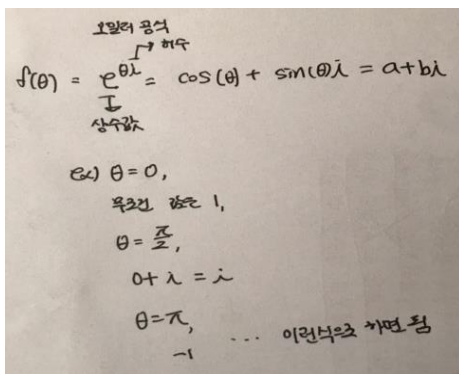 오일러 공식
→ 허수
f(θ) = e^{θi} = cos(θ) + sin(θ)i = a+bi
↓
상수값
ex) θ = 0,
무조건 값은 1,
θ = π/2,
0 + i = i
θ = π,
-1 ... 이런식으로 하면 됨